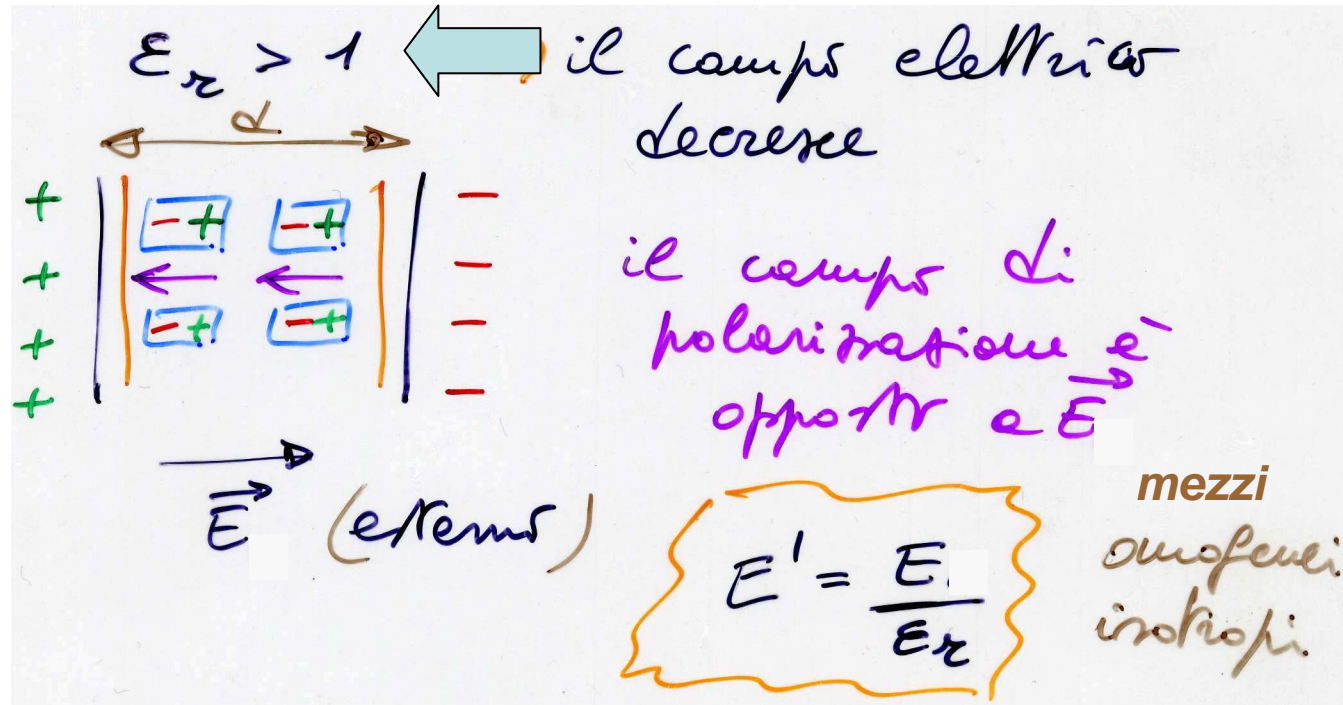 εr > 1
il campo elettrico
decresce
d
+ - + - + -
il campo di
+ -
polarizzazione è
+ - + - + -
opposto a E⃗
+ -
E⃗ (esterno)
mezzi
omogenei
isotropi
E' = E / εr